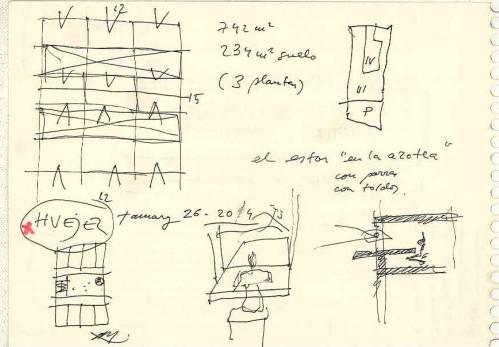 12
742 m²
234 m² suelo
(3 plantas)
15
IV
III
P
el estar "en la azotea"
con parras
con toldos.
12
HUEJEZ
26 - 20